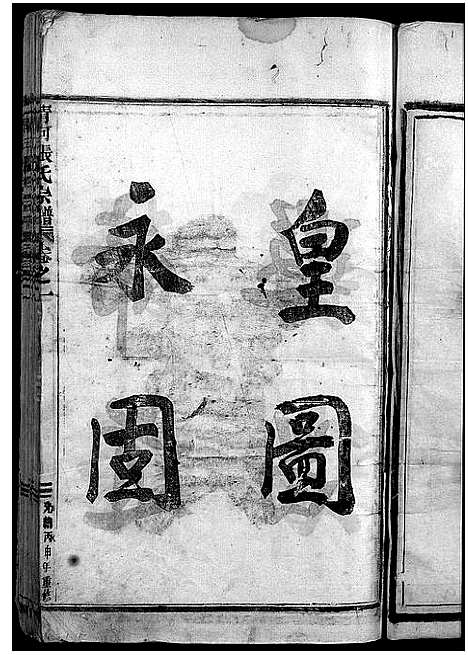 皇圖
永固
清河張氏宗譜卷之一
光緒丙申年重修